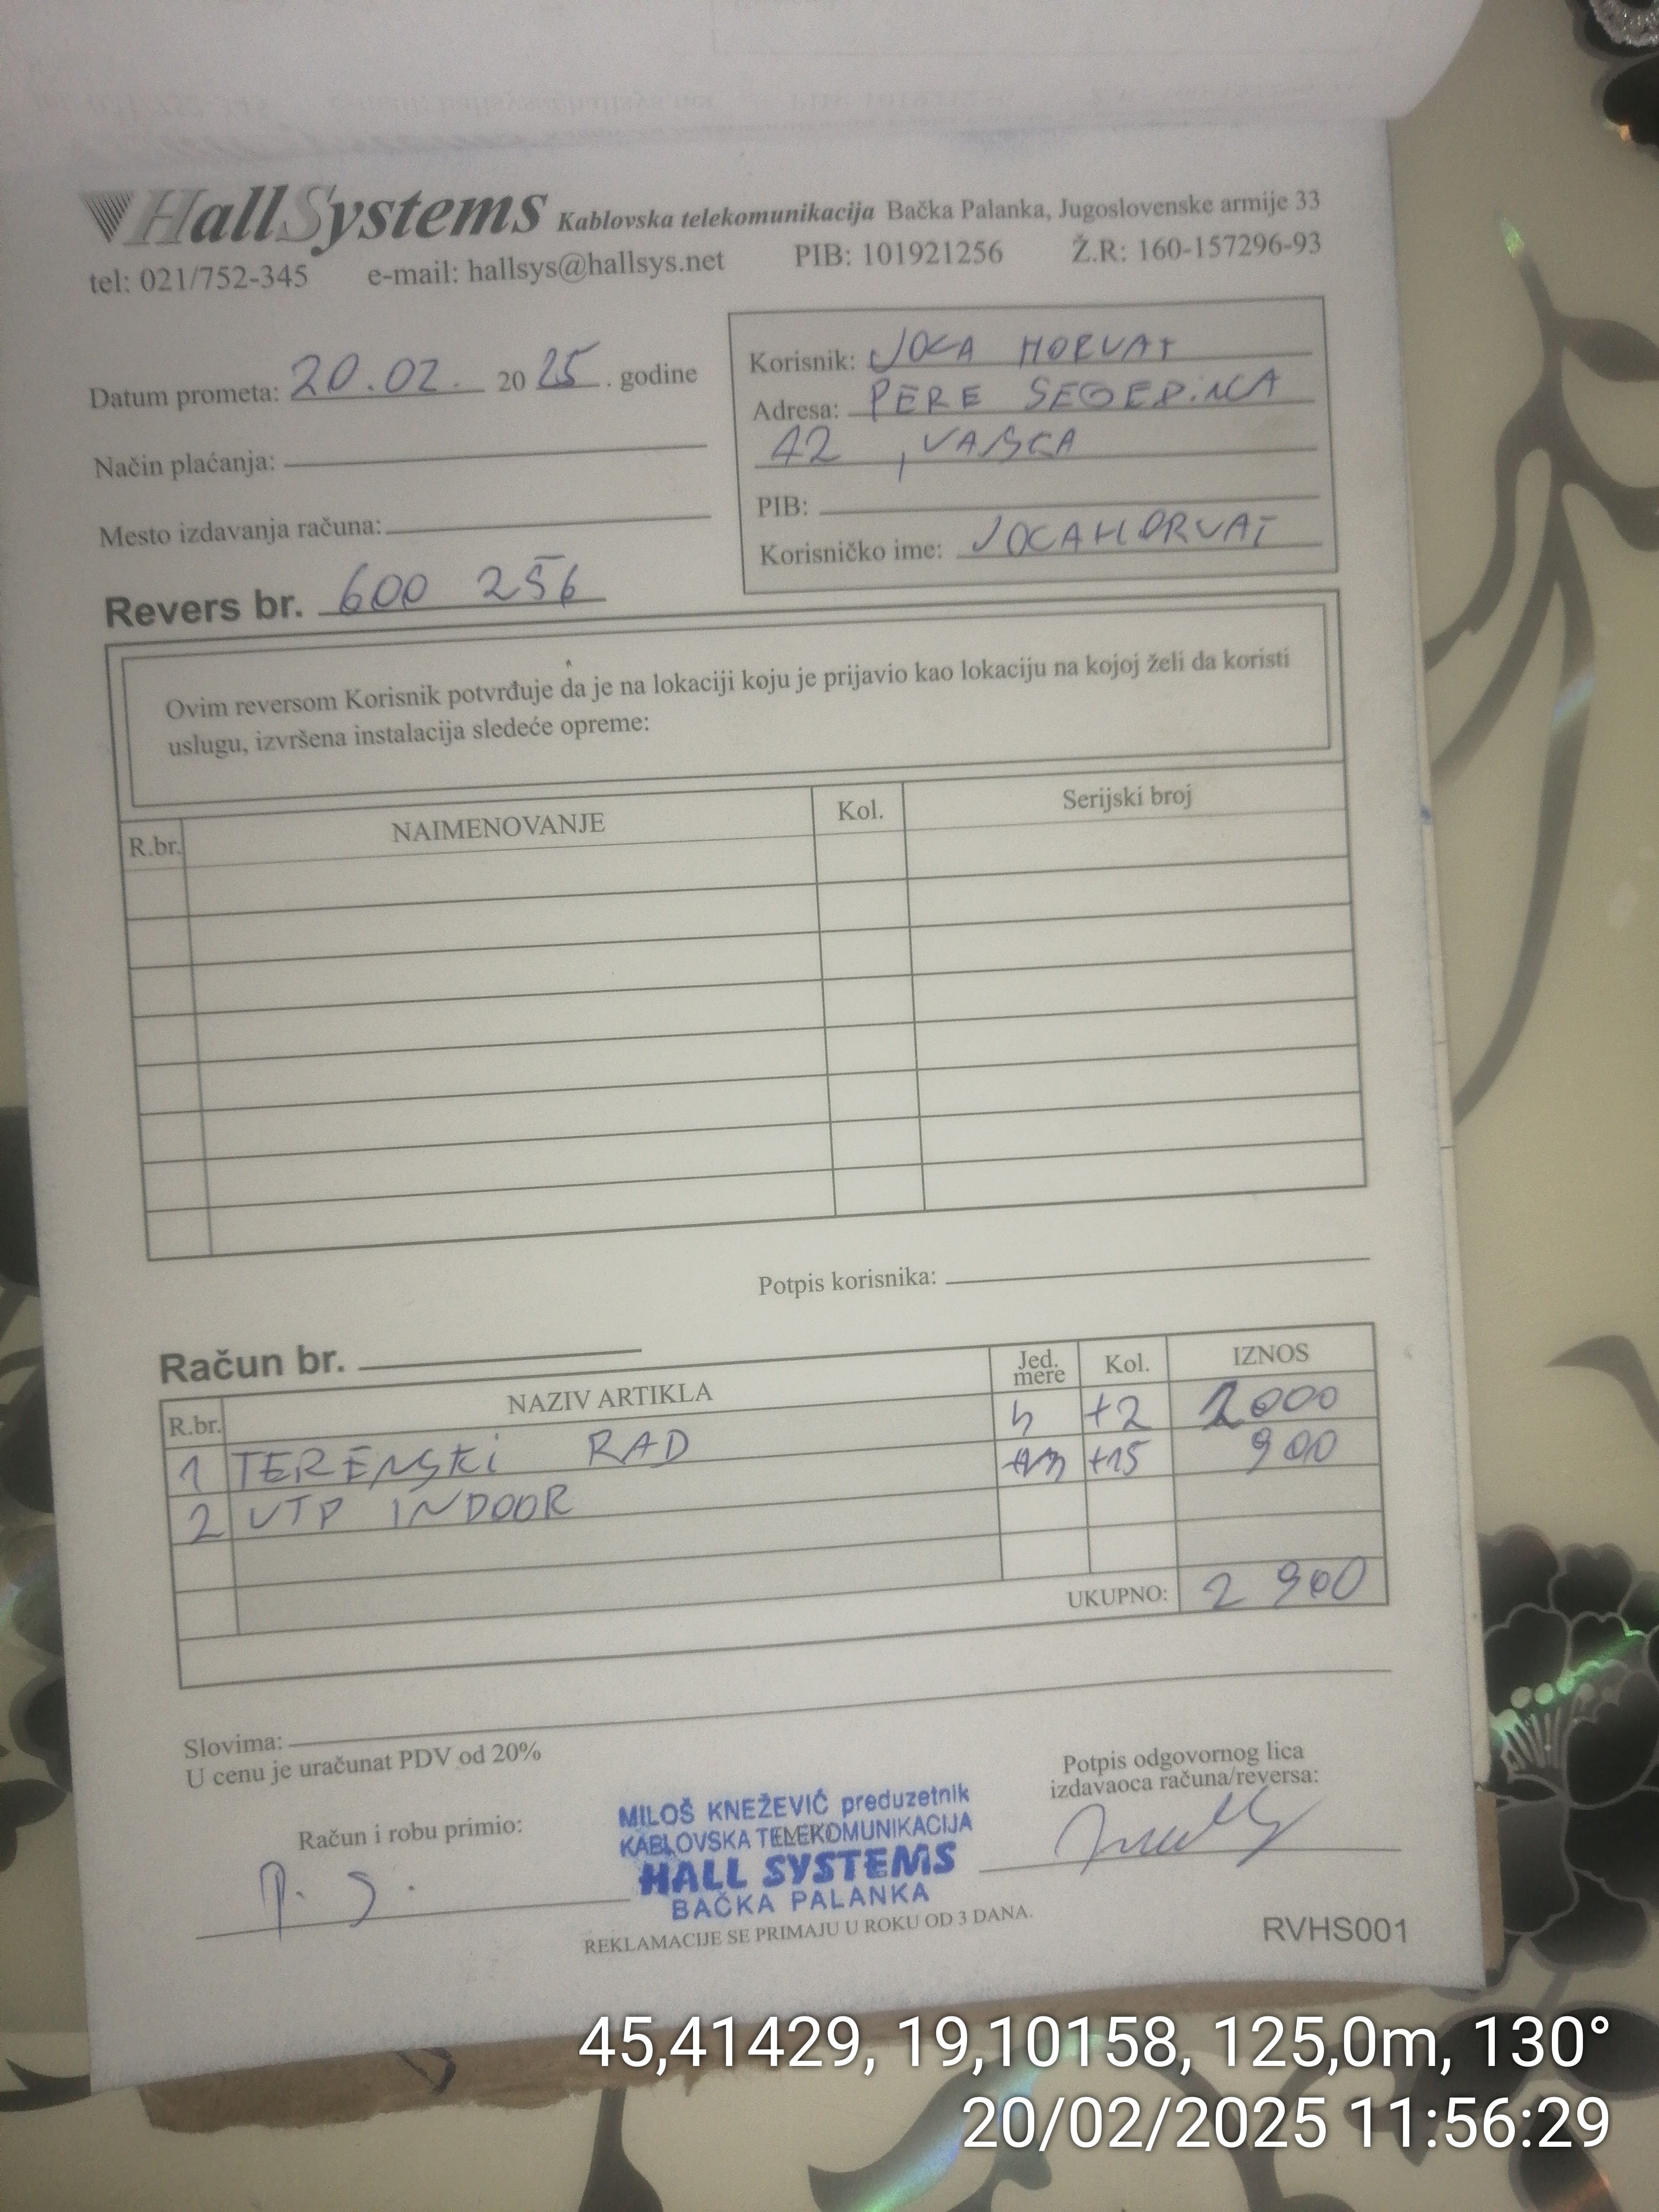 HallSystems Kablovska telekomunikacija Bačka Palanka, Jugoslovenske armije 33
tel: 021/752-345 e-mail: hallsys@hallsys.net PIB: 101921256 Ž.R: 160-157296-93
Datum prometa: 20.02. 2025. godine
Način plaćanja:
Mesto izdavanja računa:
Revers br. 600 256
Korisnik: JOCA HORVAT
Adresa: PERE SEGEDINCA
42, VAJSKA
PIB:
Korisničko ime: JOCAHORVAT
Ovim reversom Korisnik potvrđuje da je na lokaciji koju je prijavio kao lokaciju na kojoj želi da koristi
uslugu, izvršena instalacija sledeće opreme:
R.br. NAIMENOVANJE Kol. Serijski broj
Potpis korisnika:
Račun br.
R.br. NAZIV ARTIKLA Jed. mere Kol. IZNOS
1 TERENSKI RAD h +2 2000
2 UTP INDOOR +15 900
UKUPNO: 2 900
Slovima:
U cenu je uračunat PDV od 20%
Račun i robu primio:
P. S.
MILOŠ KNEŽEVIĆ preduzetnik
KABLOVSKA TELEKOMUNIKACIJA
HALL SYSTEMS
BAČKA PALANKA
Potpis odgovornog lica
izdavaoca računa/reversa:
REKLAMACIJE SE PRIMAJU U ROKU OD 3 DANA.
RVHS001
45,41429, 19,10158, 125,0m, 130°
20/02/2025 11:56:29